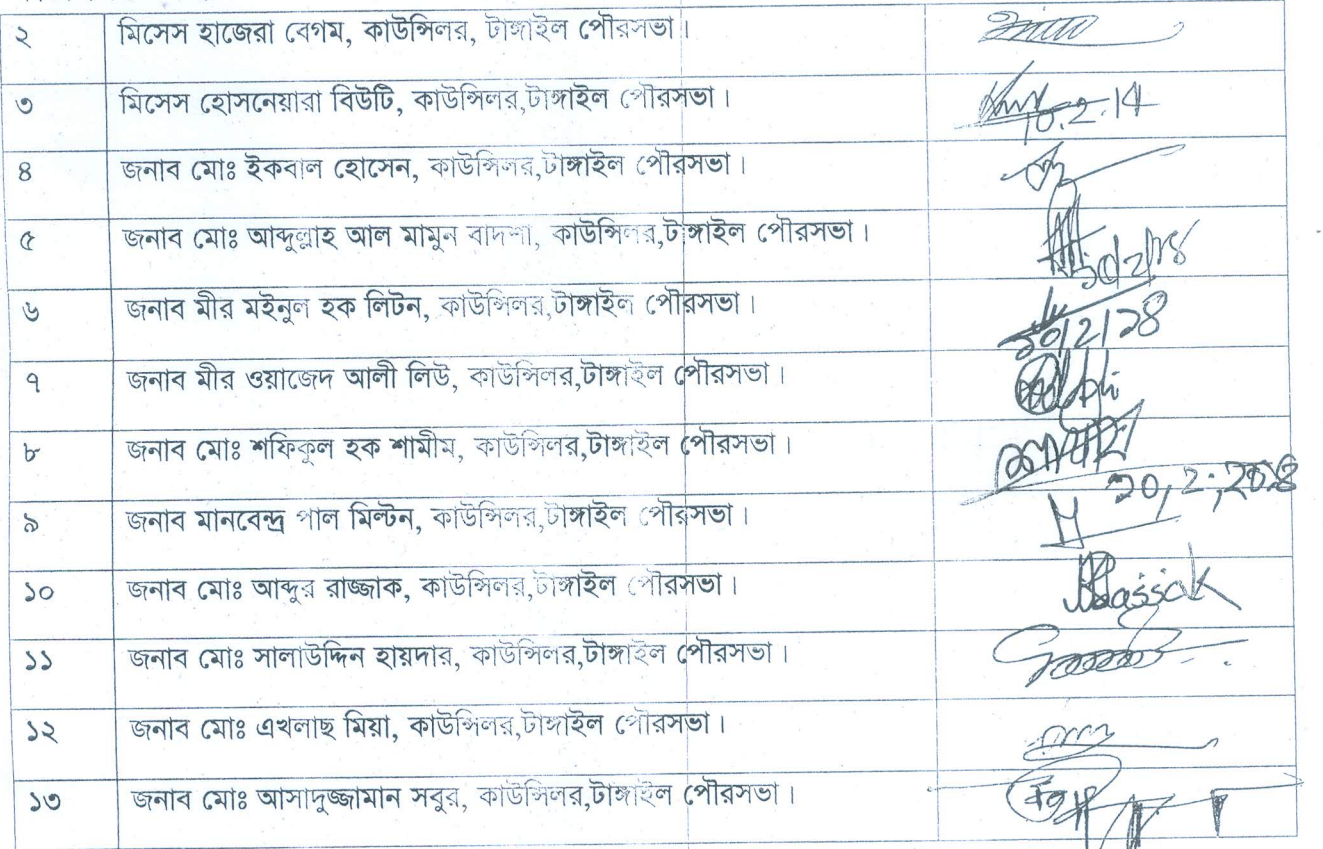 ২ মিসেস হাজেরা বেগম, কাউন্সিলর, টাঙ্গাইল পৌরসভা।
৩ মিসেস হোসনেয়ারা বিউটি, কাউন্সিলর,টাঙ্গাইল পৌরসভা। 10.2.14
৪ জনাব মোঃ ইকবাল হোসেন, কাউন্সিলর,টাঙ্গাইল পৌরসভা।
৫ জনাব মোঃ আব্দুল্লাহ আল মামুন বাদশা, কাউন্সিলর,টাঙ্গাইল পৌরসভা।
৬ জনাব মীর মইনুল হক লিটন, কাউন্সিলর,টাঙ্গাইল পৌরসভা। ১০/২/১৪
৭ জনাব মীর ওয়াজেদ আলী লিউ, কাউন্সিলর,টাঙ্গাইল পৌরসভা।
৮ জনাব মোঃ শফিকুল হক শামীম, কাউন্সিলর,টাঙ্গাইল পৌরসভা।
৯ জনাব মানবেন্দ্র পাল মিল্টন, কাউন্সিলর,টাঙ্গাইল পৌরসভা।
১০ জনাব মোঃ আব্দুর রাজ্জাক, কাউন্সিলর,টাঙ্গাইল পৌরসভা।
১১ জনাব মোঃ সালাউদ্দিন হায়দার, কাউন্সিলর,টাঙ্গাইল পৌরসভা।
১২ জনাব মোঃ এখলাছ মিয়া, কাউন্সিলর,টাঙ্গাইল পৌরসভা।
১৩ জনাব মোঃ আসাদুজ্জামান সবুর, কাউন্সিলর,টাঙ্গাইল পৌরসভা।